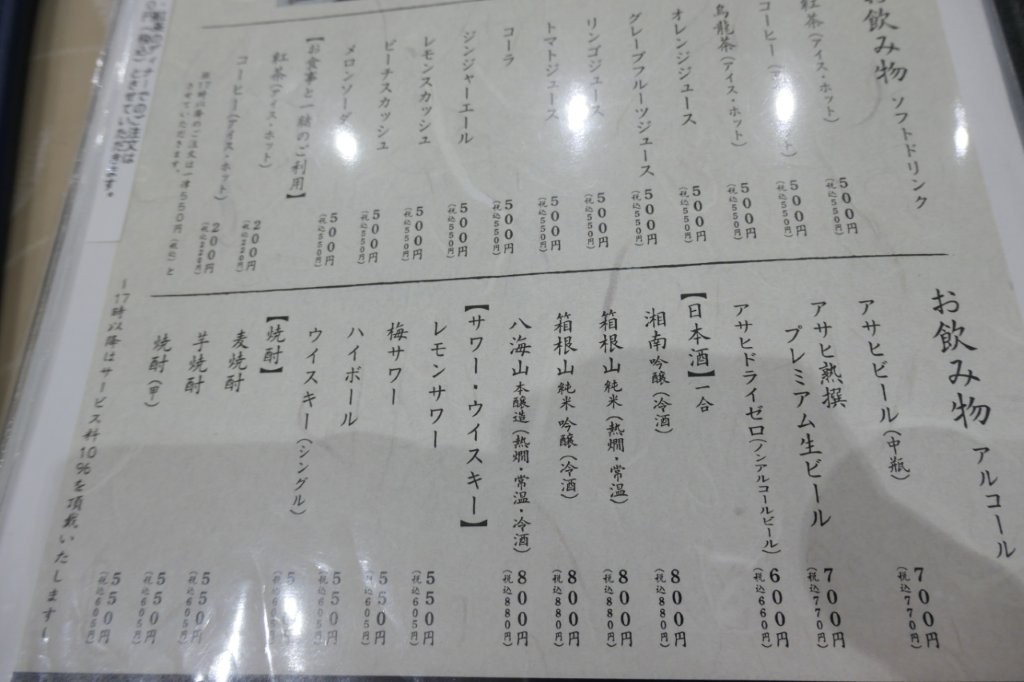 お飲み物 ソフトドリンク
紅茶(アイス・ホット) 500円(税込550円)
コーヒー 500円(税込550円)
烏龍茶(アイス・ホット) 500円(税込550円)
オレンジジュース 500円(税込550円)
グレープフルーツジュース 500円(税込550円)
リンゴジュース 500円(税込550円)
トマトジュース 500円(税込550円)
コーラ 500円(税込550円)
ジンジャーエール 500円(税込550円)
レモンスカッシュ 500円(税込550円)
ピーチスカッシュ 500円(税込550円)
メロンソーダ 500円(税込550円)
【お食事と一緒のご利用】
紅茶(アイス・ホット) 200円(税込220円)
コーヒー(アイス・ホット) 200円(税込220円)
17時以降のご注文は一律550円(税込)と
させていただきます。
お飲み物 アルコール
アサヒビール(中瓶) 700円(税込770円)
アサヒ熟撰
プレミアム生ビール 700円(税込770円)
アサヒドライゼロ(ノンアルコールビール) 600円(税込660円)
【日本酒】一合
湘南 吟醸(冷酒) 800円(税込880円)
箱根山 純米(熱燗・常温) 800円(税込880円)
箱根山 純米 吟醸(冷酒) 800円(税込880円)
八海山 本醸造(熱燗・常温・冷酒) 800円(税込880円)
【サワー・ウイスキー】
レモンサワー 550円(税込605円)
梅サワー 550円(税込605円)
ハイボール 550円(税込605円)
ウイスキー(シングル)
【焼酎】
麦焼酎 550円(税込605円)
芋焼酎 550円(税込605円)
焼酎(甲) 550円(税込605円)
ー17時以降はサービス料10%を頂戴いたしますー